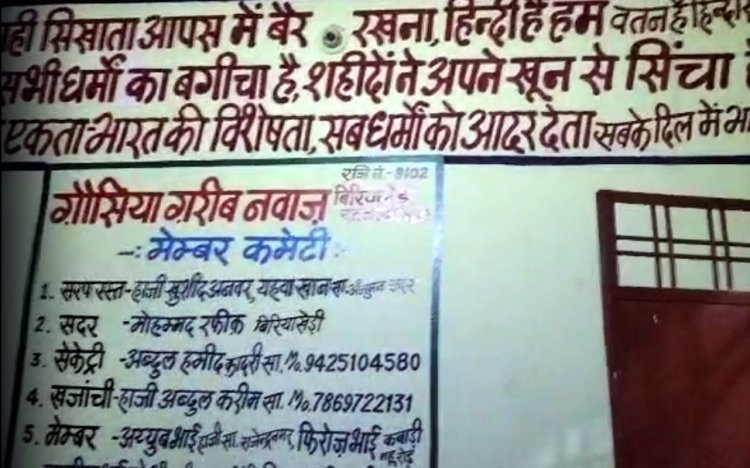 ही सिखाता आपस में बैर रखना, हिन्दी है हम वतन है हिन्दो
सभी धर्मों का बगीचा है, शहीदों ने अपने खून से सिंचा है
एकता-भारत की विशेषता, सब धर्मों को आदर देता सबके दिल में भा
रजि नं.- 8102
गौसिया ग़रीब नवाज़
-: मेम्बर कमेटी :-
1. सरपरस्त-हाजी खुर्शीद अनवर, यहया खान सा.
2. सदर - मोहम्मद रफीक़ बिरियाखेड़ी
3. सेकेट्री - अब्दुल हमीद क़ादरी सा. M. 9425104580
4. खजांची-हाजी अब्दुल करीम सा. M. 7869722131
5. मेम्बर - अय्युब भाई हाजी सा. राजेन्द्र नगर, फिरोज़ भाई कबाड़ी